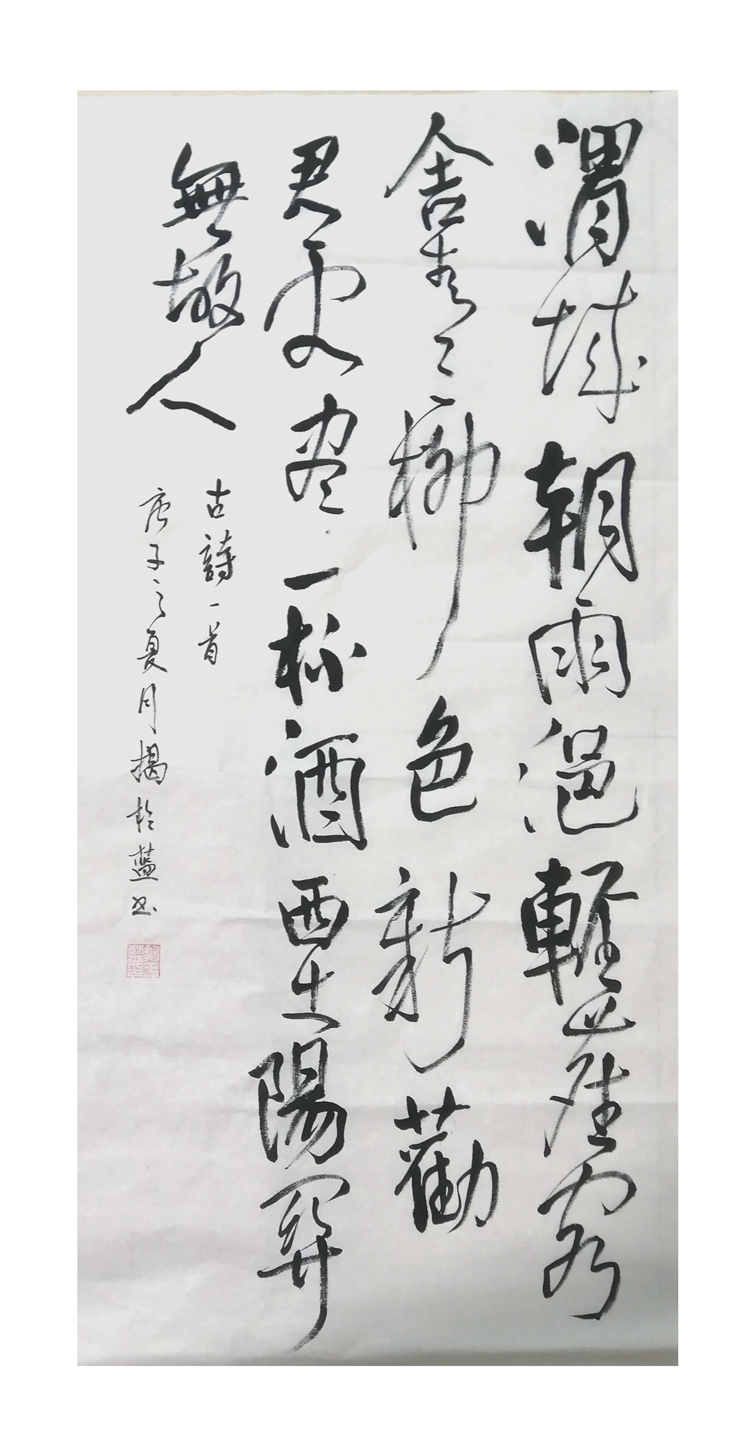 渭城朝雨浥輕塵客
舍青〻柳色新勸
君更尽一杯酒西出陽関
無故人
古詩一首
庚子之夏月揭於蓝书